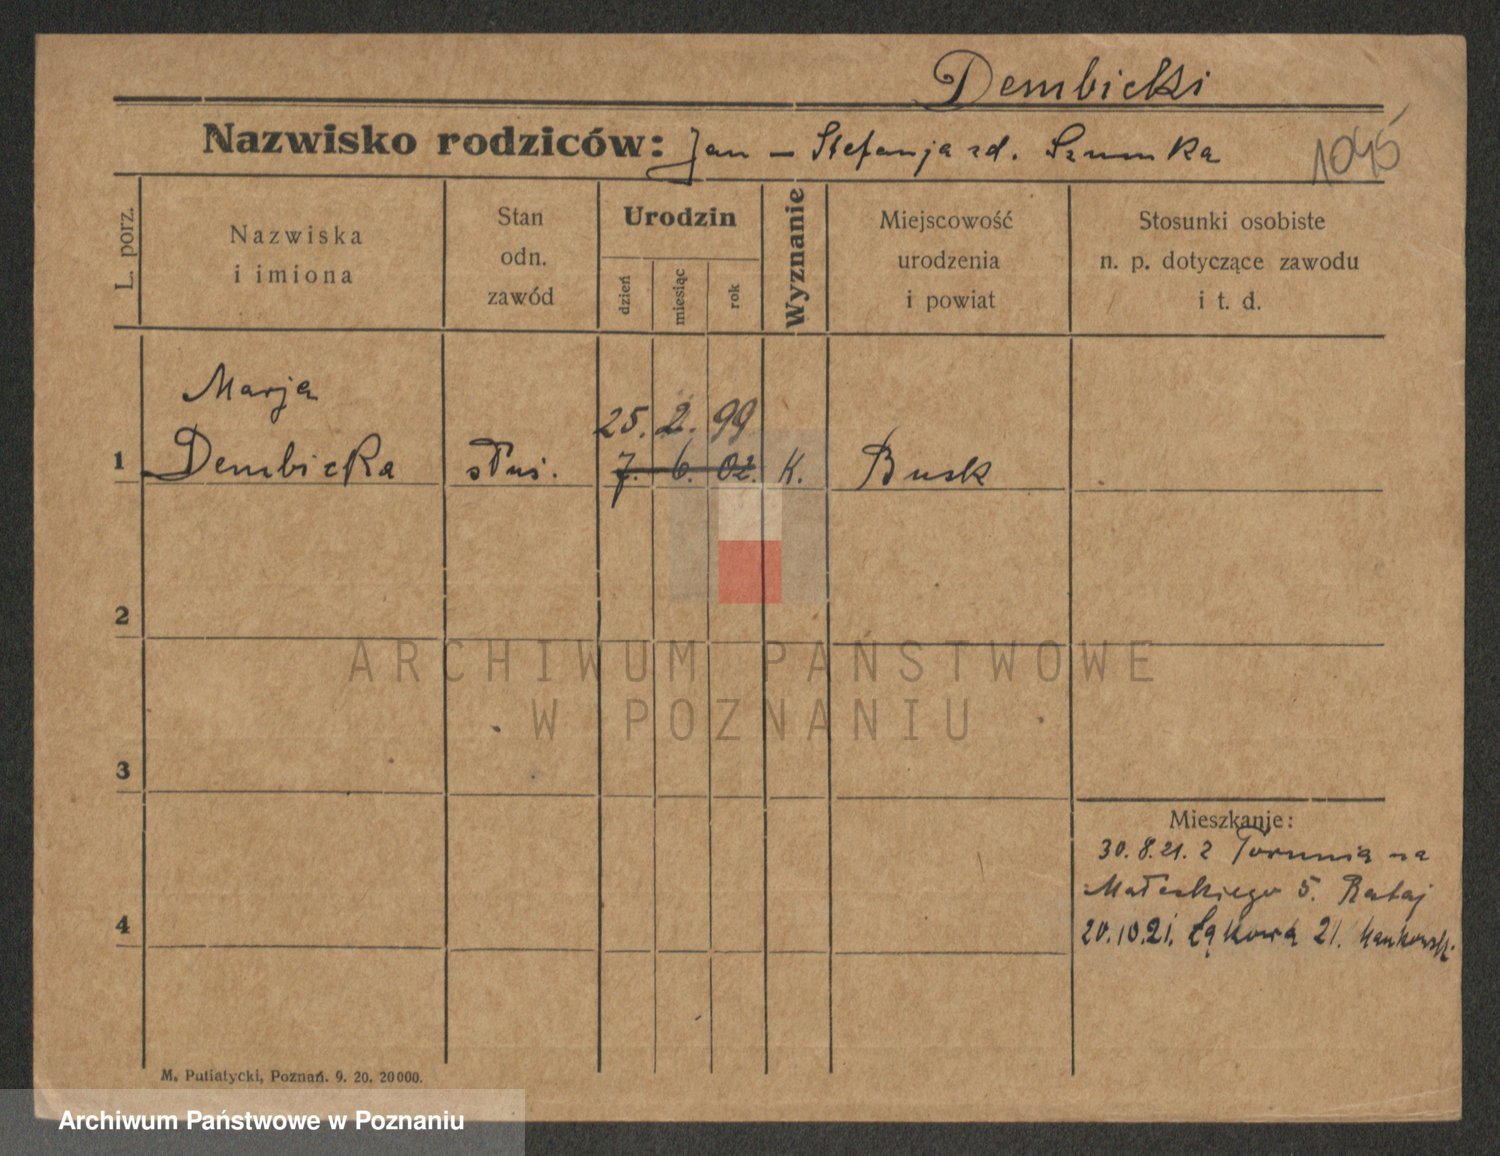 Dembicki
Nazwisko rodziców: Jan – Stefanja zd. Szumska
1045
L. porz.
Nazwiska
i imiona
Stan
odn.
zawód
Urodzin
dzień
miesiąc
rok
Wyznanie
Miejscowość
urodzenia
i powiat
Stosunki osobiste
n. p. dotyczące zawodu
i t. d.
Marja
25. 2. 99
1 Dembicka służ. 7. 6. 02. K. Busk
2
3
4
Mieszkanie:
30.8.21. z Torunia na
Małeckiego 5. Rataj
20.10.21. Łąkowa 21.
M. Putiatycki, Poznań. 9. 20. 20000.
ARCHIWUM PAŃSTWOWE
W POZNANIU
Archiwum Państwowe w Poznaniu